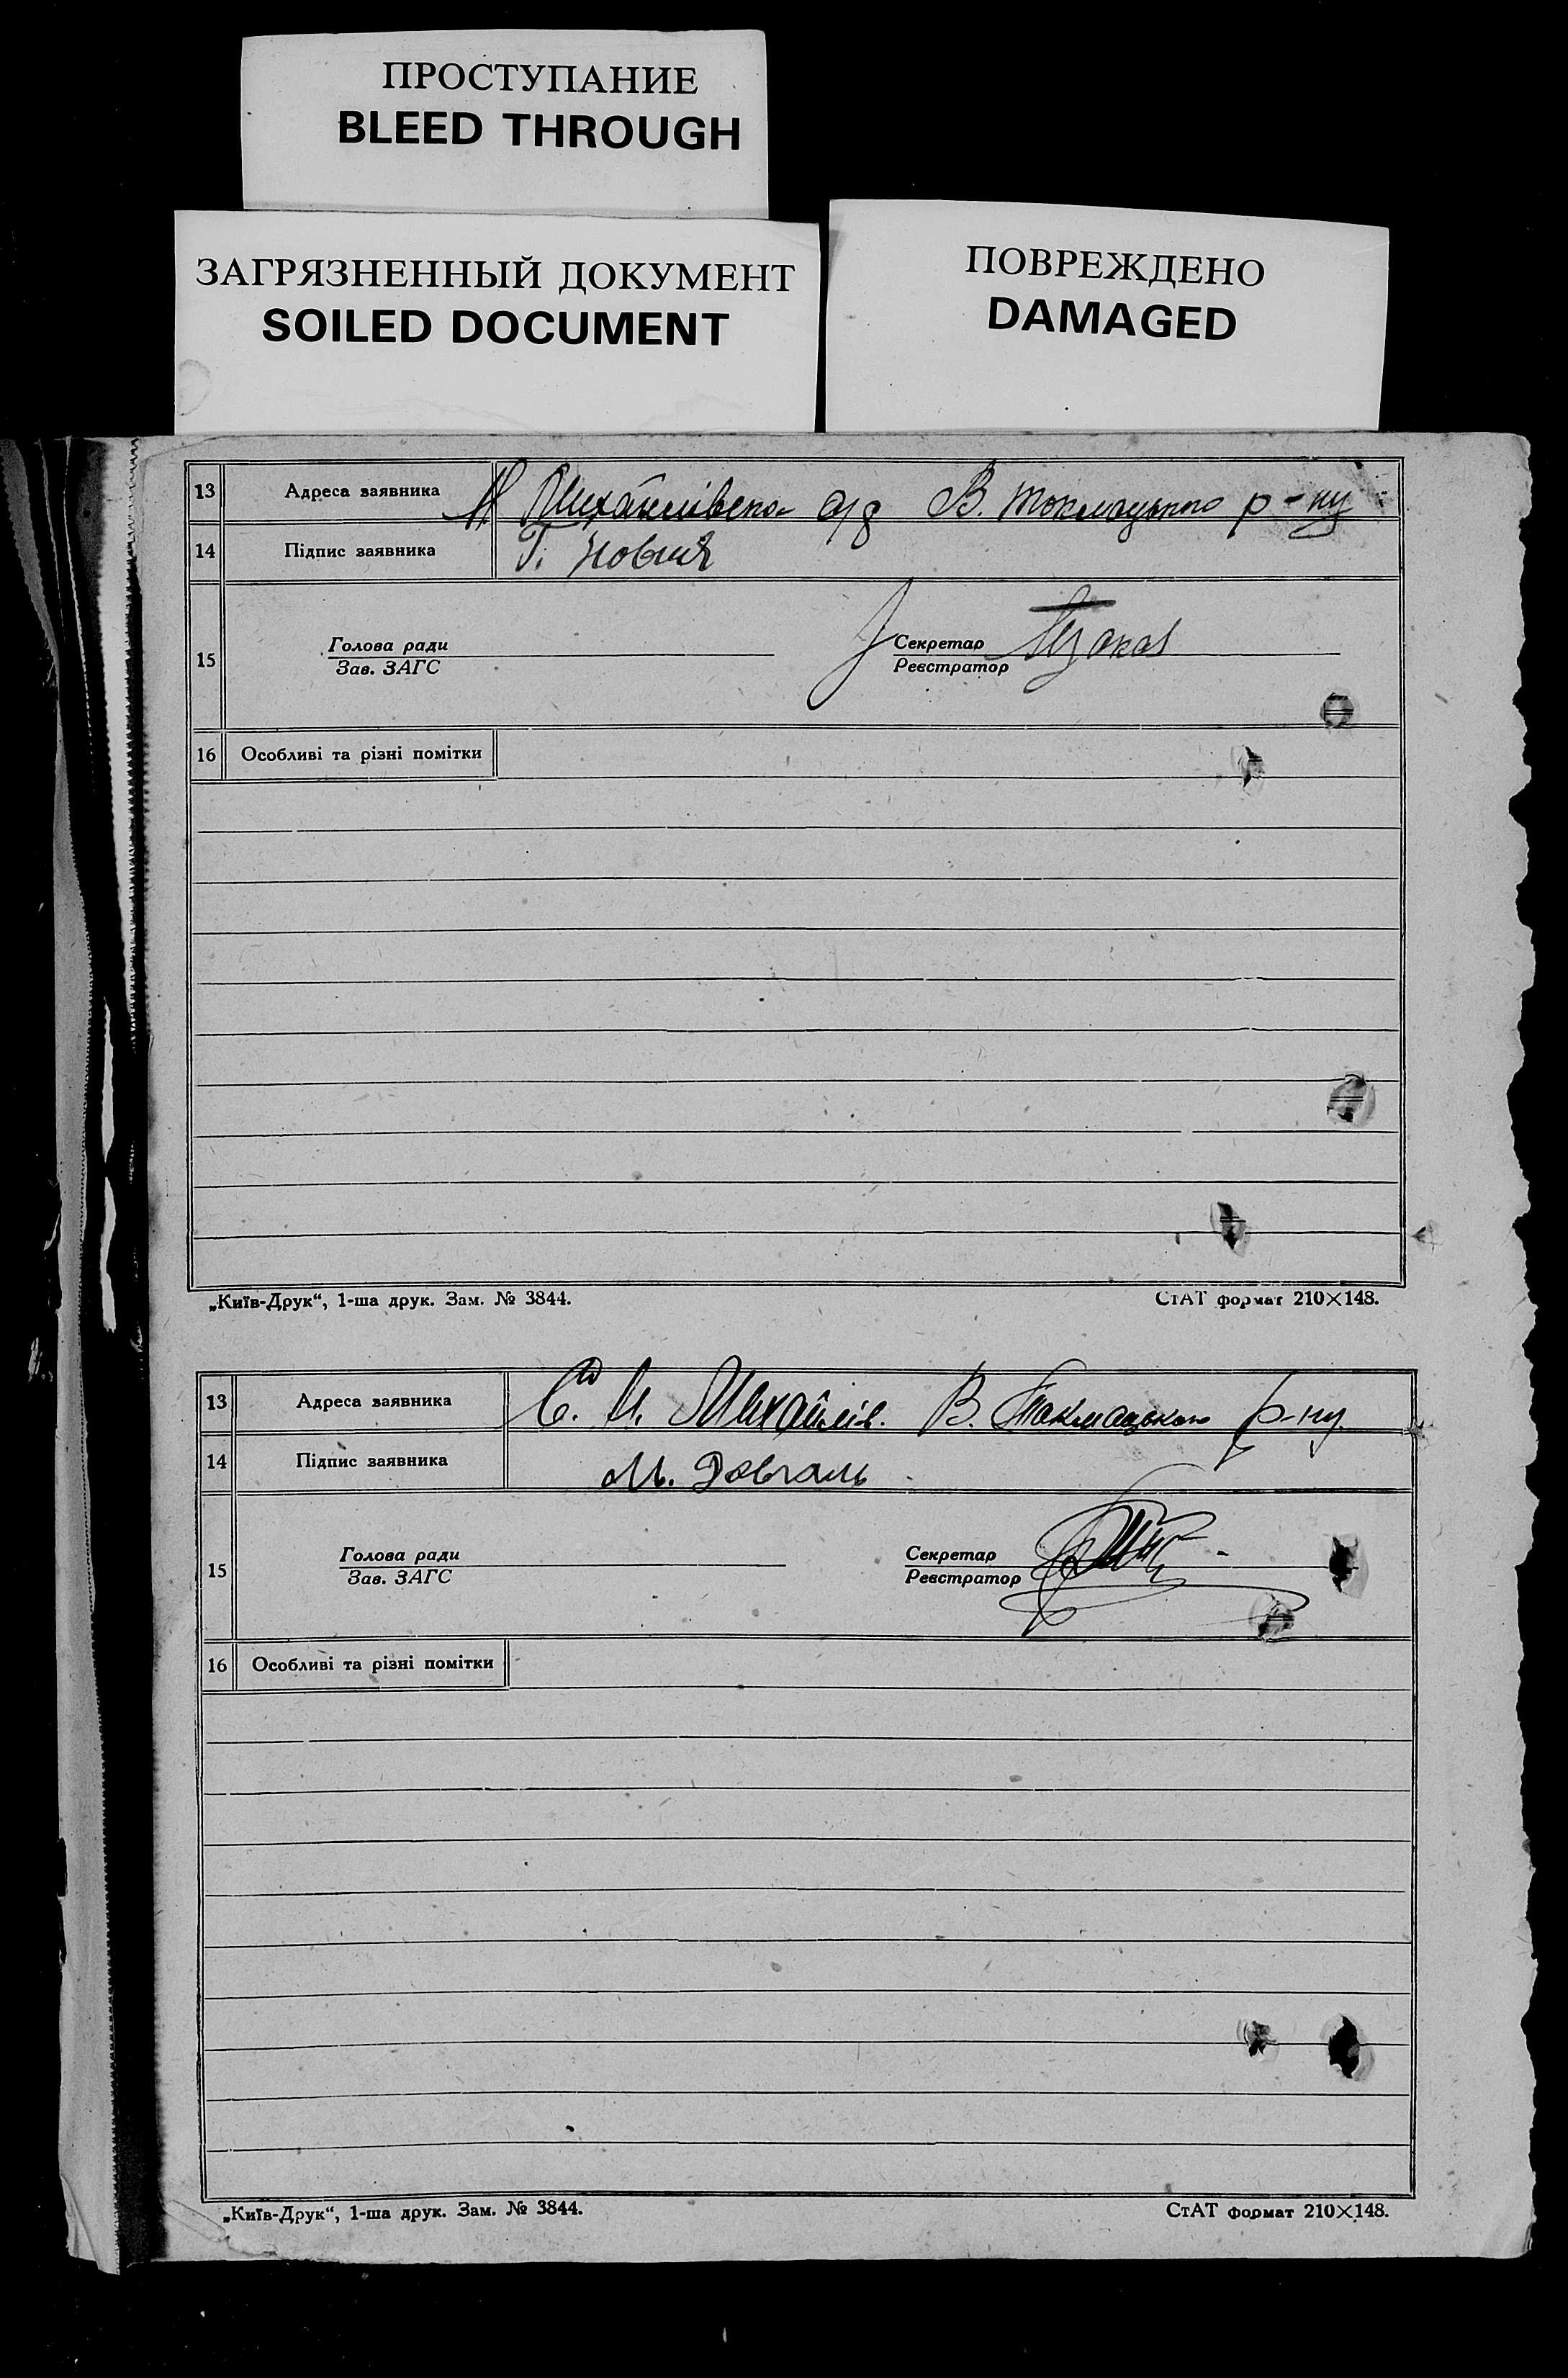 ПРОСТУПАНИЕ
BLEED THROUGH
ЗАГРЯЗНЕННЫЙ ДОКУМЕНТ
SOILED DOCUMENT
ПОВРЕЖДЕНО
DAMAGED
13 Адреса заявника В. Токмацького р-ну
14 Підпис заявника Г.
15 Голова ради Секретар
Зав. ЗАГС Реєстратор
16 Особливі та різні помітки
„Київ-Друк“, 1-ша друк. Зам. № 3844. СтАТ формат 210×148.
13 Адреса заявника С. М. Михайлів. В. Токмацького р-ну
14 Підпис заявника М. Довгаль
15 Голова ради Секретар
Зав. ЗАГС Реєстратор
16 Особливі та різні помітки
„Київ-Друк“, 1-ша друк. Зам. № 3844. СтАТ формат 210×148.